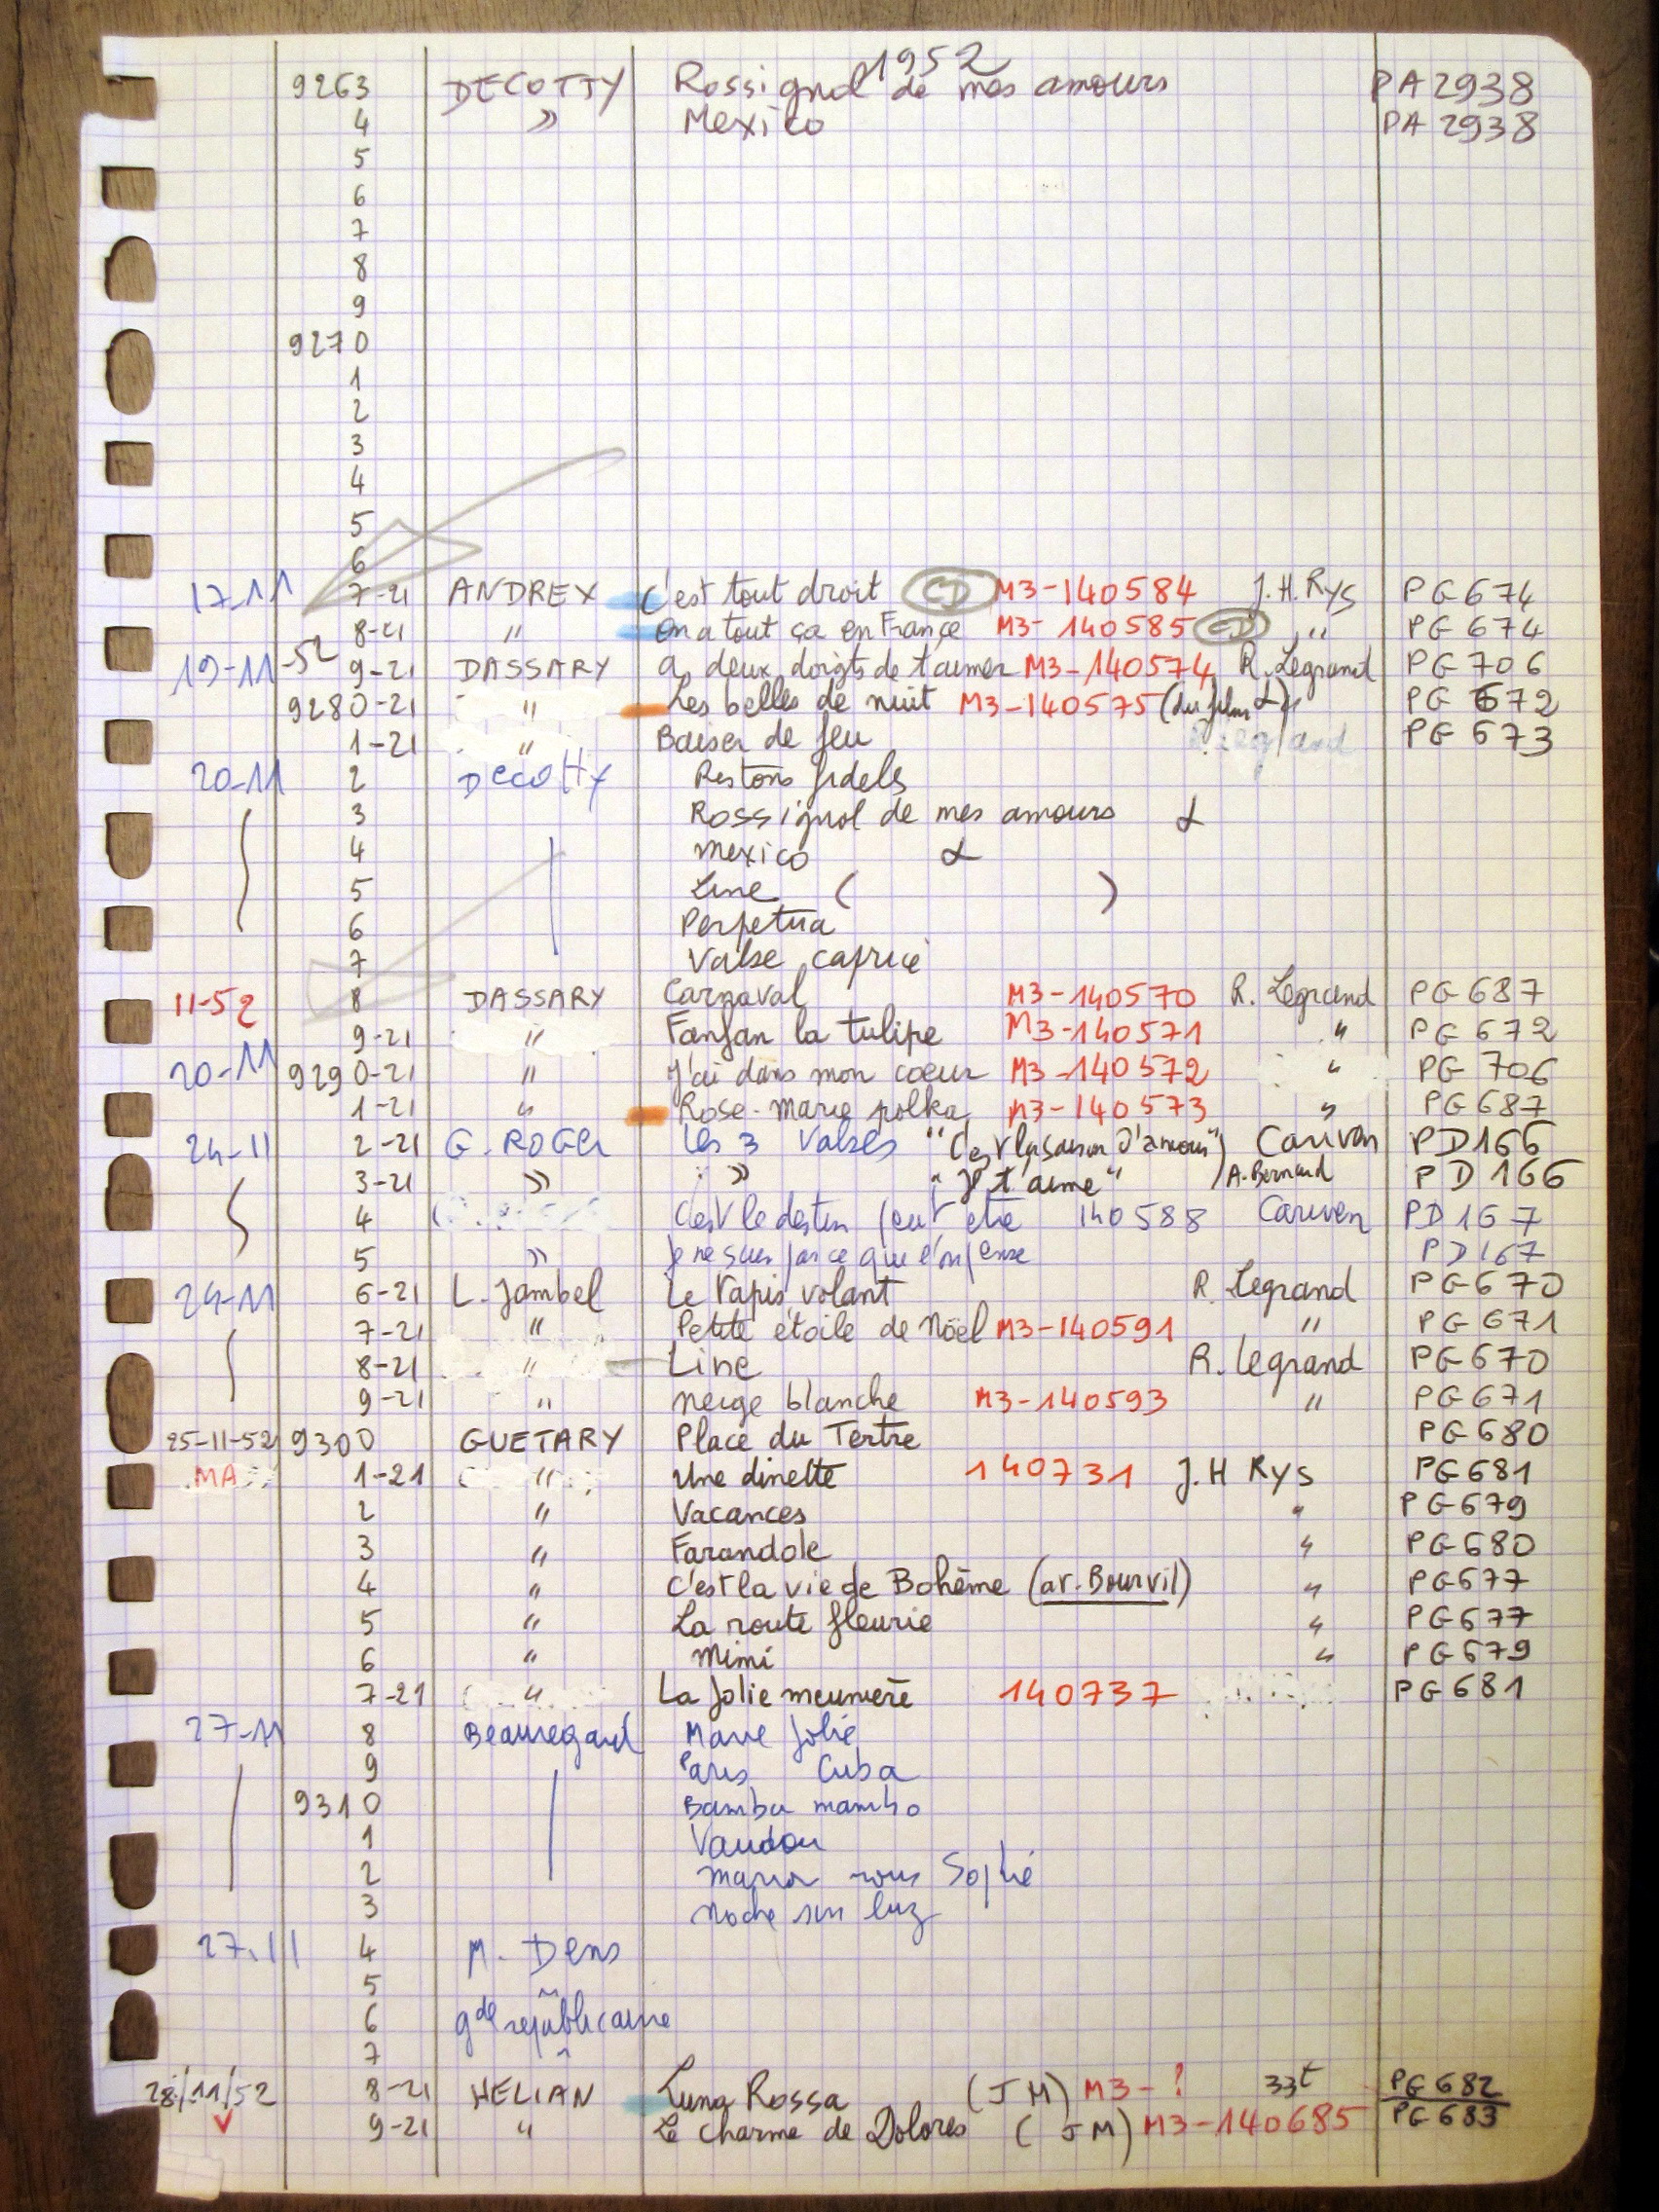 1952
9263 DECOTTY Rossignol de mes amours PA 2938
4 » Mexico PA 2938
5
6
7
8
9
9270
1
2
3
4
5
6
17-11 7-21 ANDREX C'est tout droit CD M3-140584 J.H. Rys PG 674
8-21 " On a tout ça en France M3-140585 CD " PG 674
19-11-52 9-21 DASSARY A deux doigts de t'aimer M3-140574 R. Legrand PG 706
9280-21 " Les belles de nuit M3-140575 (du film α) " PG 672
1-21 " Baiser de feu R. Legrand PG 673
20-11 2 Decotty Restons fidels
3 Rossignol de mes amours α
4 Mexico α
5 Line ( )
6 Perpetua
7 Valse caprice
11-52 8 DASSARY Carnaval M3-140570 R. Legrand PG 687
9-21 " Fanfan la tulipe M3-140571 " PG 672
20-11 9290-21 " J'ai dans mon coeur M3-140572 " PG 706
1-21 " Rose-marie polka M3-140573 " PG 687
24-11 2-21 G. ROGER Les 3 Valses "C'est la saison d'amour" Cariven PD 166
3-21 » » "Je t'aime" A. Bernard PD 166
4 C'est le destin peut etre 140588 Cariven PD 167
5 » Je ne sais pas ce que l'on pense PD 167
24-11 6-21 L. Jambel Le tapis volant R. Legrand PG 670
7-21 " Petite étoile de Noël M3-140591 " PG 671
8-21 " Line R. Legrand PG 670
9-21 " Neige blanche M3-140593 " PG 671
25-11-52 9300 GUETARY Place du Tertre PG 680
MA 1-21 " Une dinette 140731 J.H Rys PG 681
2 " Vacances " PG 679
3 " Farandole " PG 680
4 " C'est la vie de Bohême (av. Bourvil) " PG 677
5 " La route fleurie " PG 677
6 " Mimi " PG 679
7-21 " La jolie meunière 140737 PG 681
27-11 8 Beauregard Marie jolie
9 Paris Cuba
9310 Bambu mambo
1 Vaudou
2 Maria Sophie
3 Noche sin luz
27.11 4 M. Dens
5
6 gde républicaine
7
28/11/52 8-21 HELIAN Luna Rossa (JM) M3-? 33t PG 682
9-21 " Le charme de Dolores (JM) M3-140685 PG 683